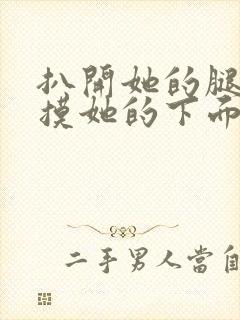 扒開她的腿
摸她的下面
二手男人當自